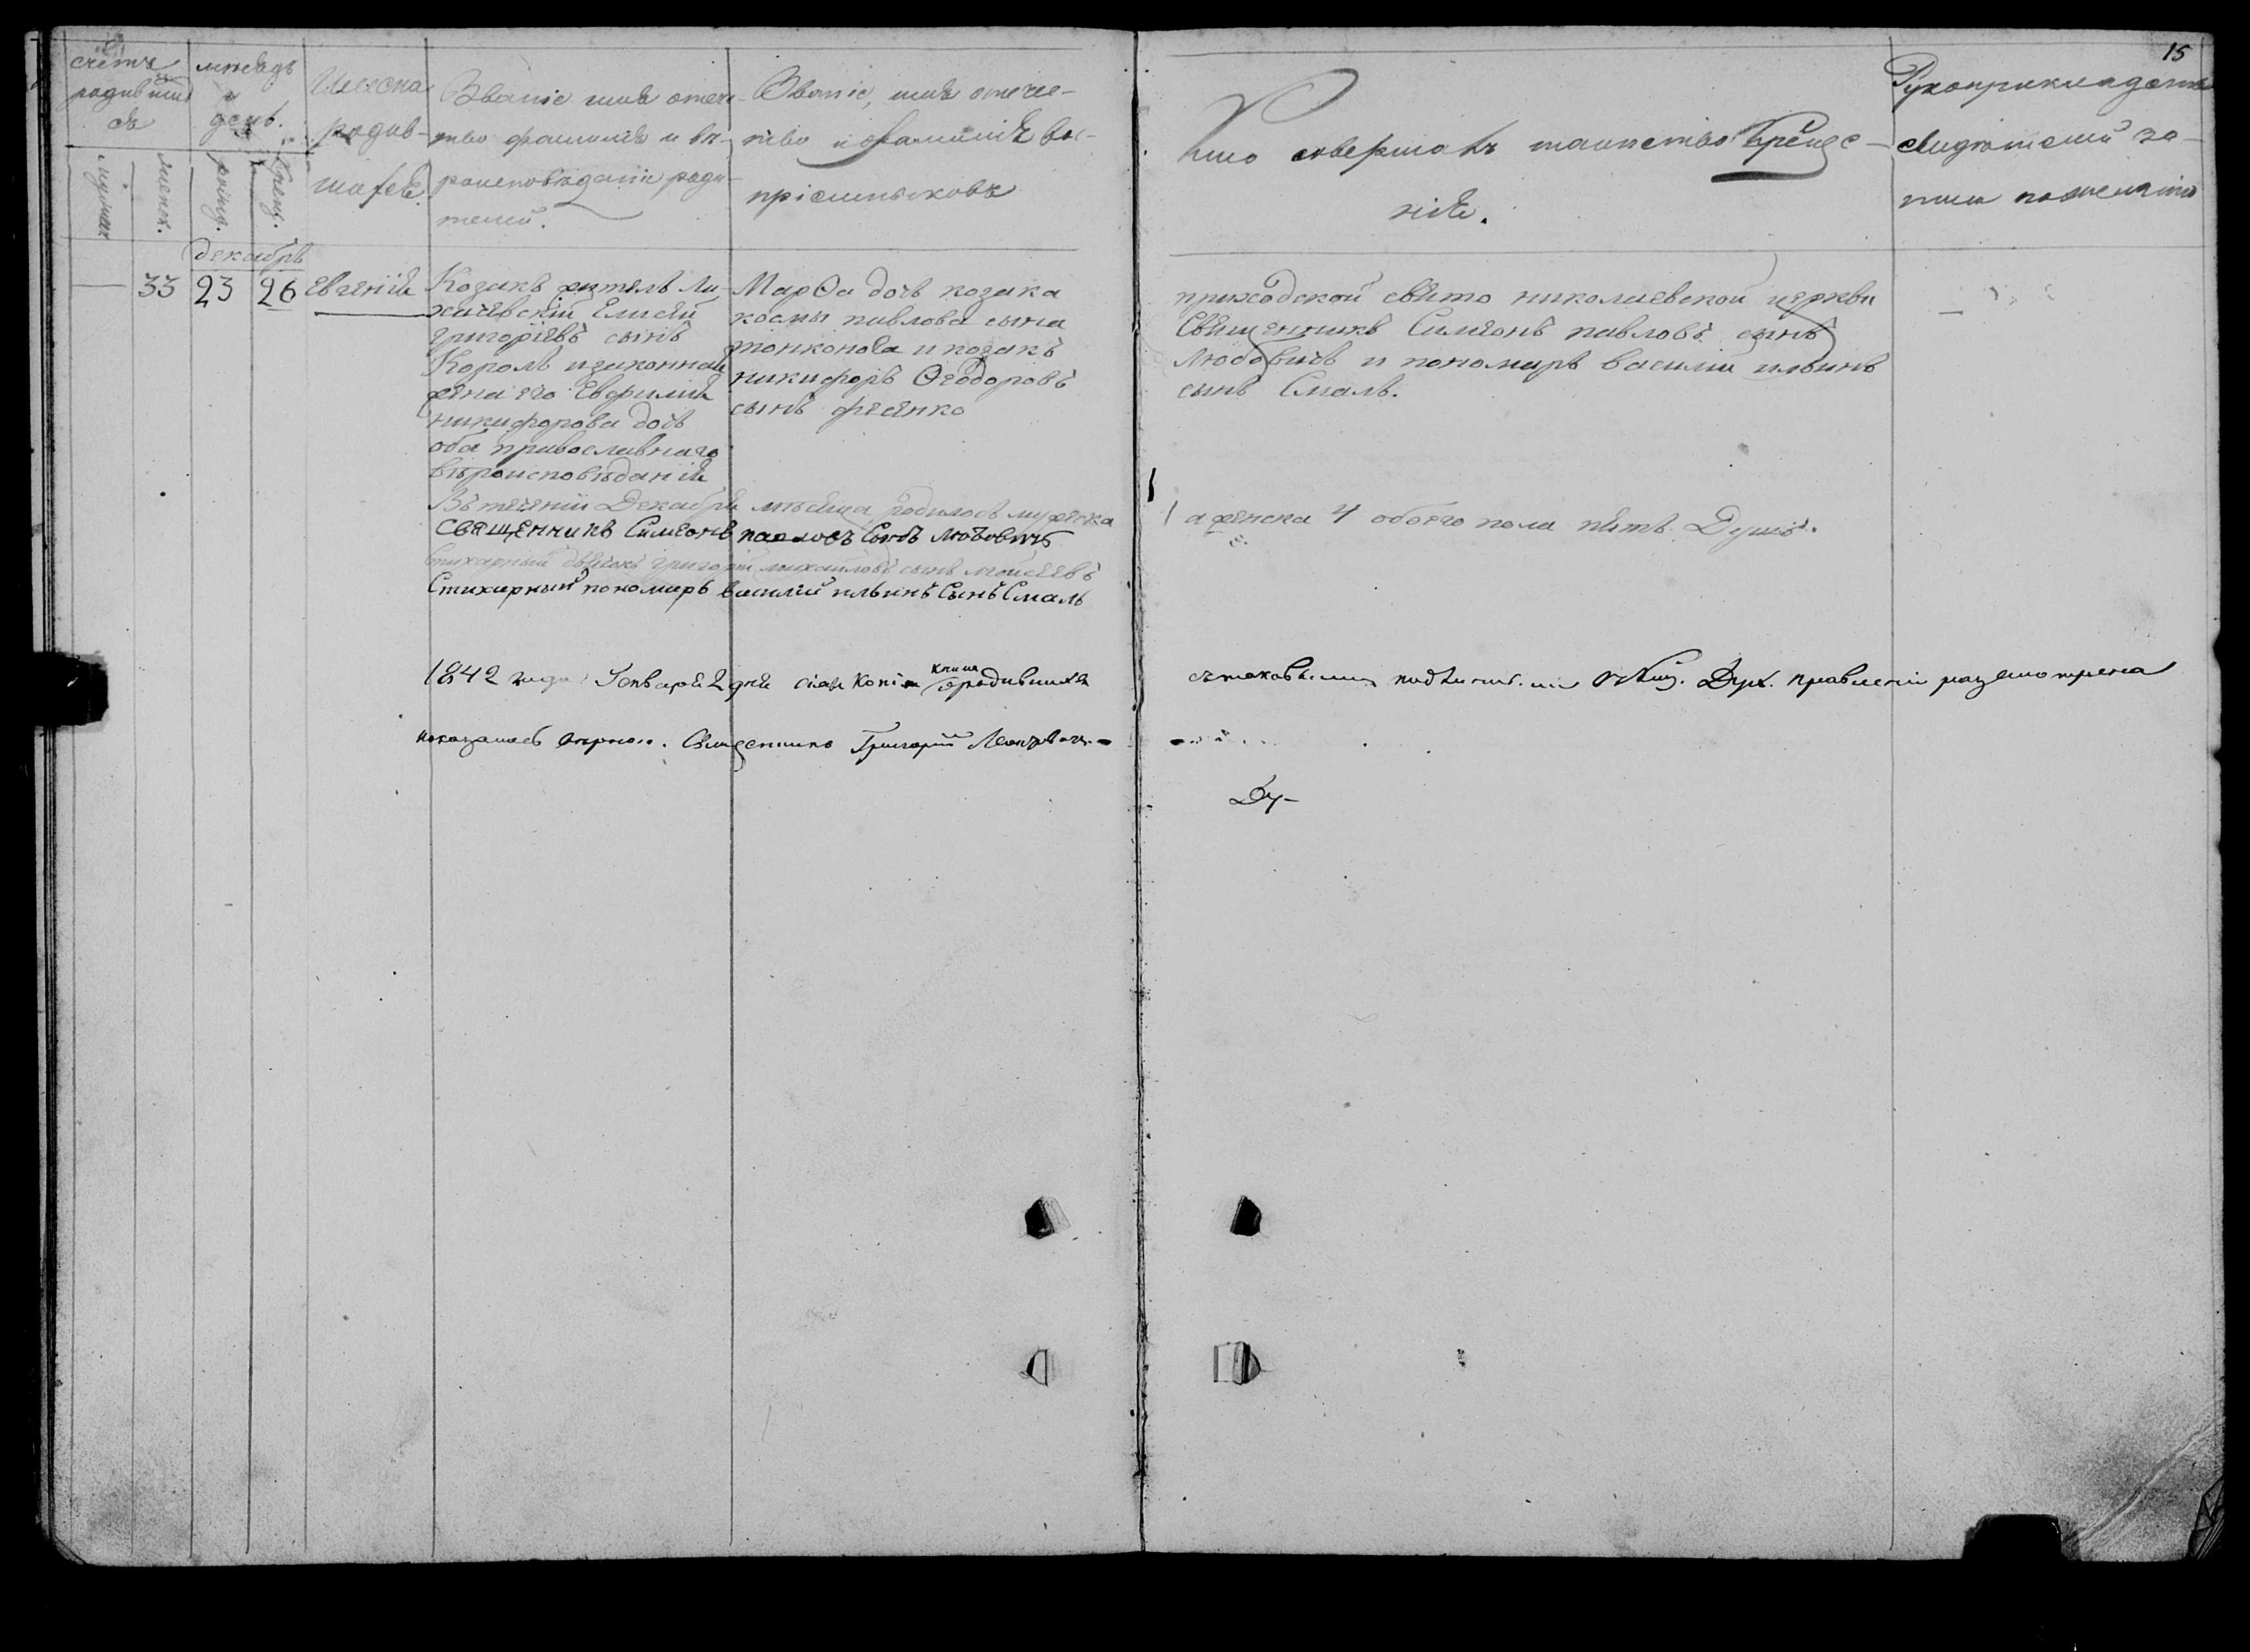 15
счетъ
родивши
ся
мѣсяцъ
и
день.
Имена
родив-
шихся.
Званіе имя отече-
тво фамилія и вѣ-
роисповѣданіе роди-
телей.
Званіе, имя отече-
тво и фамилія вос-
пріемниковъ
Кто совершалъ таинство креще-
нія.
Рукоприкладство
свидѣтелей за-
писи по желанію
мужеск
женск.
рожд.
крещ.
декабрь
33 23 26 Евгенія
Козакъ житель Ли-
хачевскій Елисей
Григоріевъ сынъ
Король и законная
жена его Евфимія
никифорова дочь
оба православнаго
вѣроисповѣданія
Марѳа дочь козака
космы павлова сына
тонконога и козакъ
никифоръ Ѳеодоровъ
сынъ фесенко
приходской свято николаевской церкви
Священникъ Симеонъ павловъ сынъ
Любовичъ и пономарь василій ильинъ
сынъ Смаль.
Въ теченіи Декабря мѣсяца родилось мужеска 1 а женска 4 обоего пола пять Душъ.
Священникъ Симеонъ павловъ Сынъ Любовичъ
Стихарный дьячокъ григорій михаиловъ сынъ моисеевъ
Стихарный пономарь василій ильинъ Сынъ Смаль
1842 года Генваря 2 дня сія копія книга о родившихся
съ таковыми Дух. Правленіи разсмотрена
показалась вѣрною. Священникъ Григорій